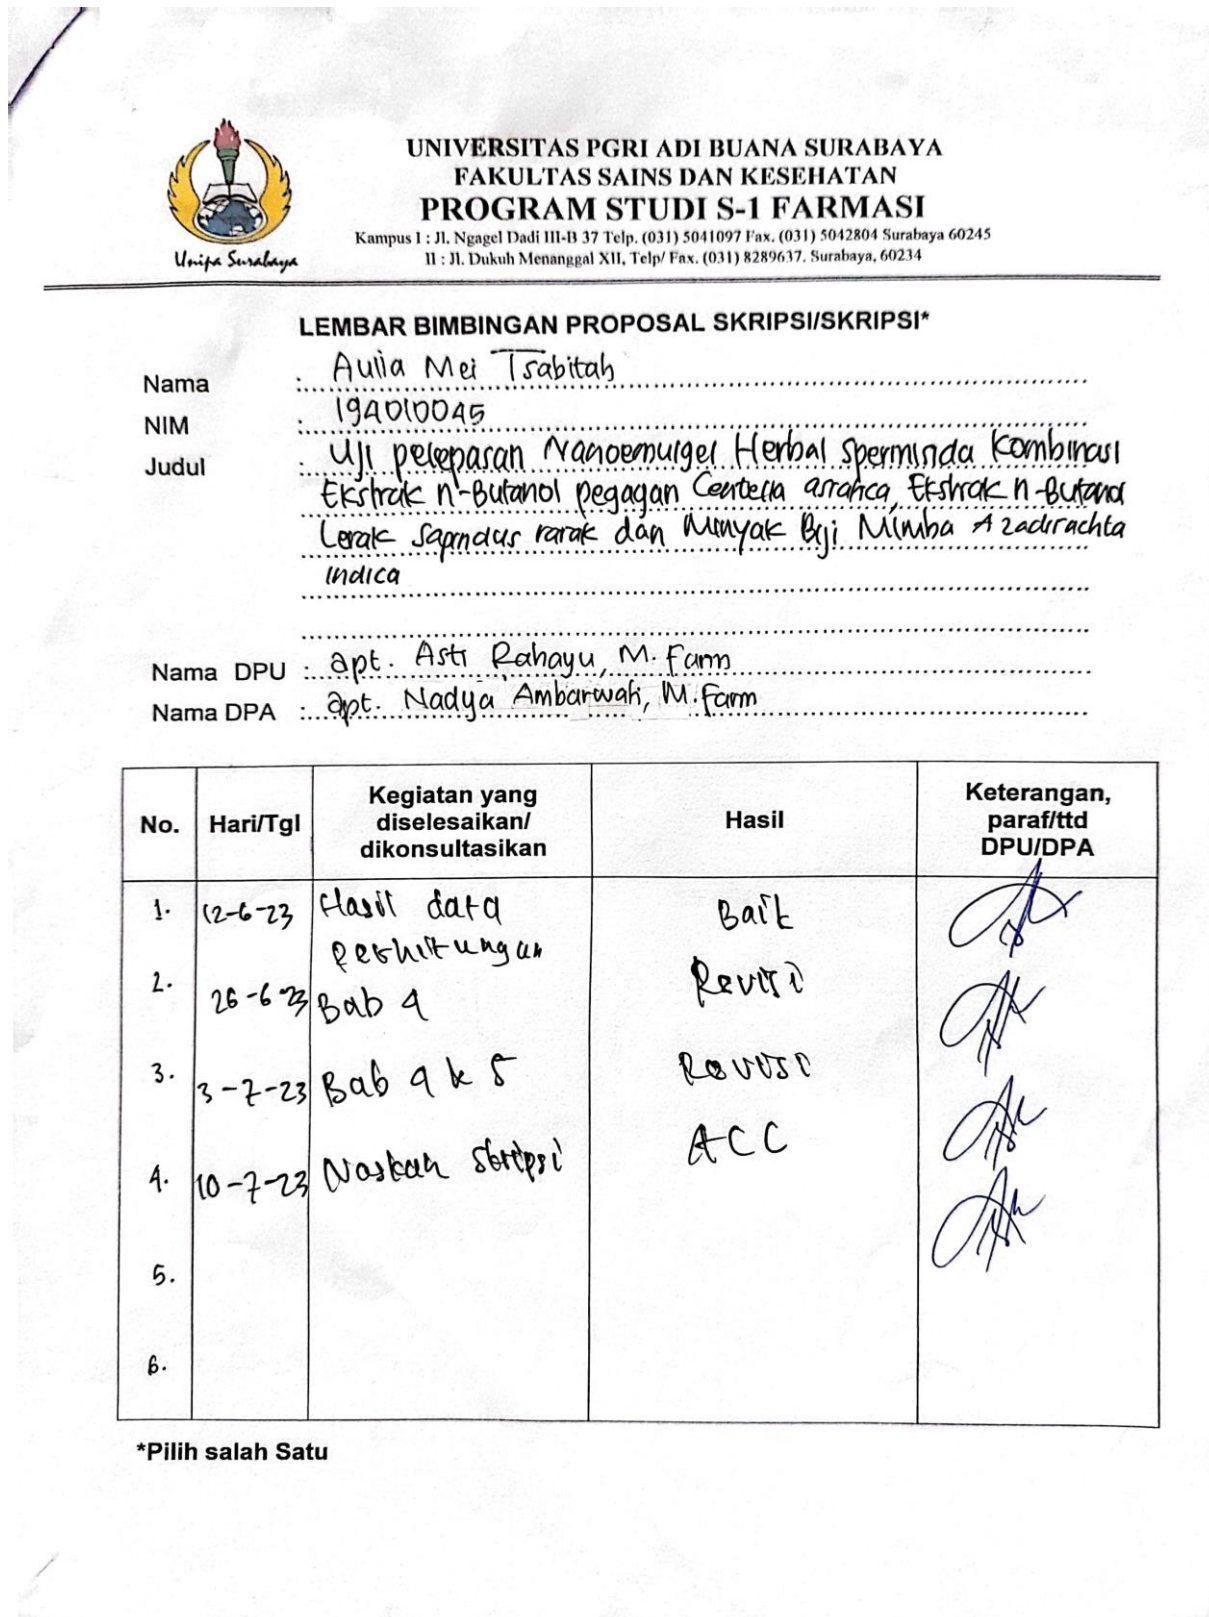 UNIVERSITAS PGRI ADI BUANA SURABAYA
FAKULTAS SAINS DAN KESEHATAN
PROGRAM STUDI S-1 FARMASI
Kampus I : Jl. Ngagel Dadi III-B 37 Telp. (031) 5041097 Fax. (031) 5042804 Surabaya 60245
II : Jl. Dukuh Menanggal XII, Telp/ Fax. (031) 8289637. Surabaya, 60234
Unipa Surabaya
LEMBAR BIMBINGAN PROPOSAL SKRIPSI/SKRIPSI*
Nama : Aulia Mei Tsabitah
NIM : 194010045
Judul : Uji pelepasan Nanoemulgel Herbal Sperminda Kombinasi
Ekstrak n-Butanol pegagan Centella asiatica, Ekstrak n-Butanol
Lerak Sapindus rarak dan Minyak Biji Mimba Azadirachta
Indica
Nama DPU : apt. Asti Rahayu, M. Farm
Nama DPA : apt. Nadya Ambarwati, M. Farm
No. Hari/Tgl Kegiatan yang diselesaikan/ dikonsultasikan Hasil Keterangan, paraf/ttd DPU/DPA
1. 12-6-23 Hasil data Baik
Perhitungan
2. 26-6-23 Bab 4 Revisi
3. 3-7-23 Bab 4 & 5 Revisi
4. 10-7-23 Naskah Skripsi ACC
5.
6.
*Pilih salah Satu